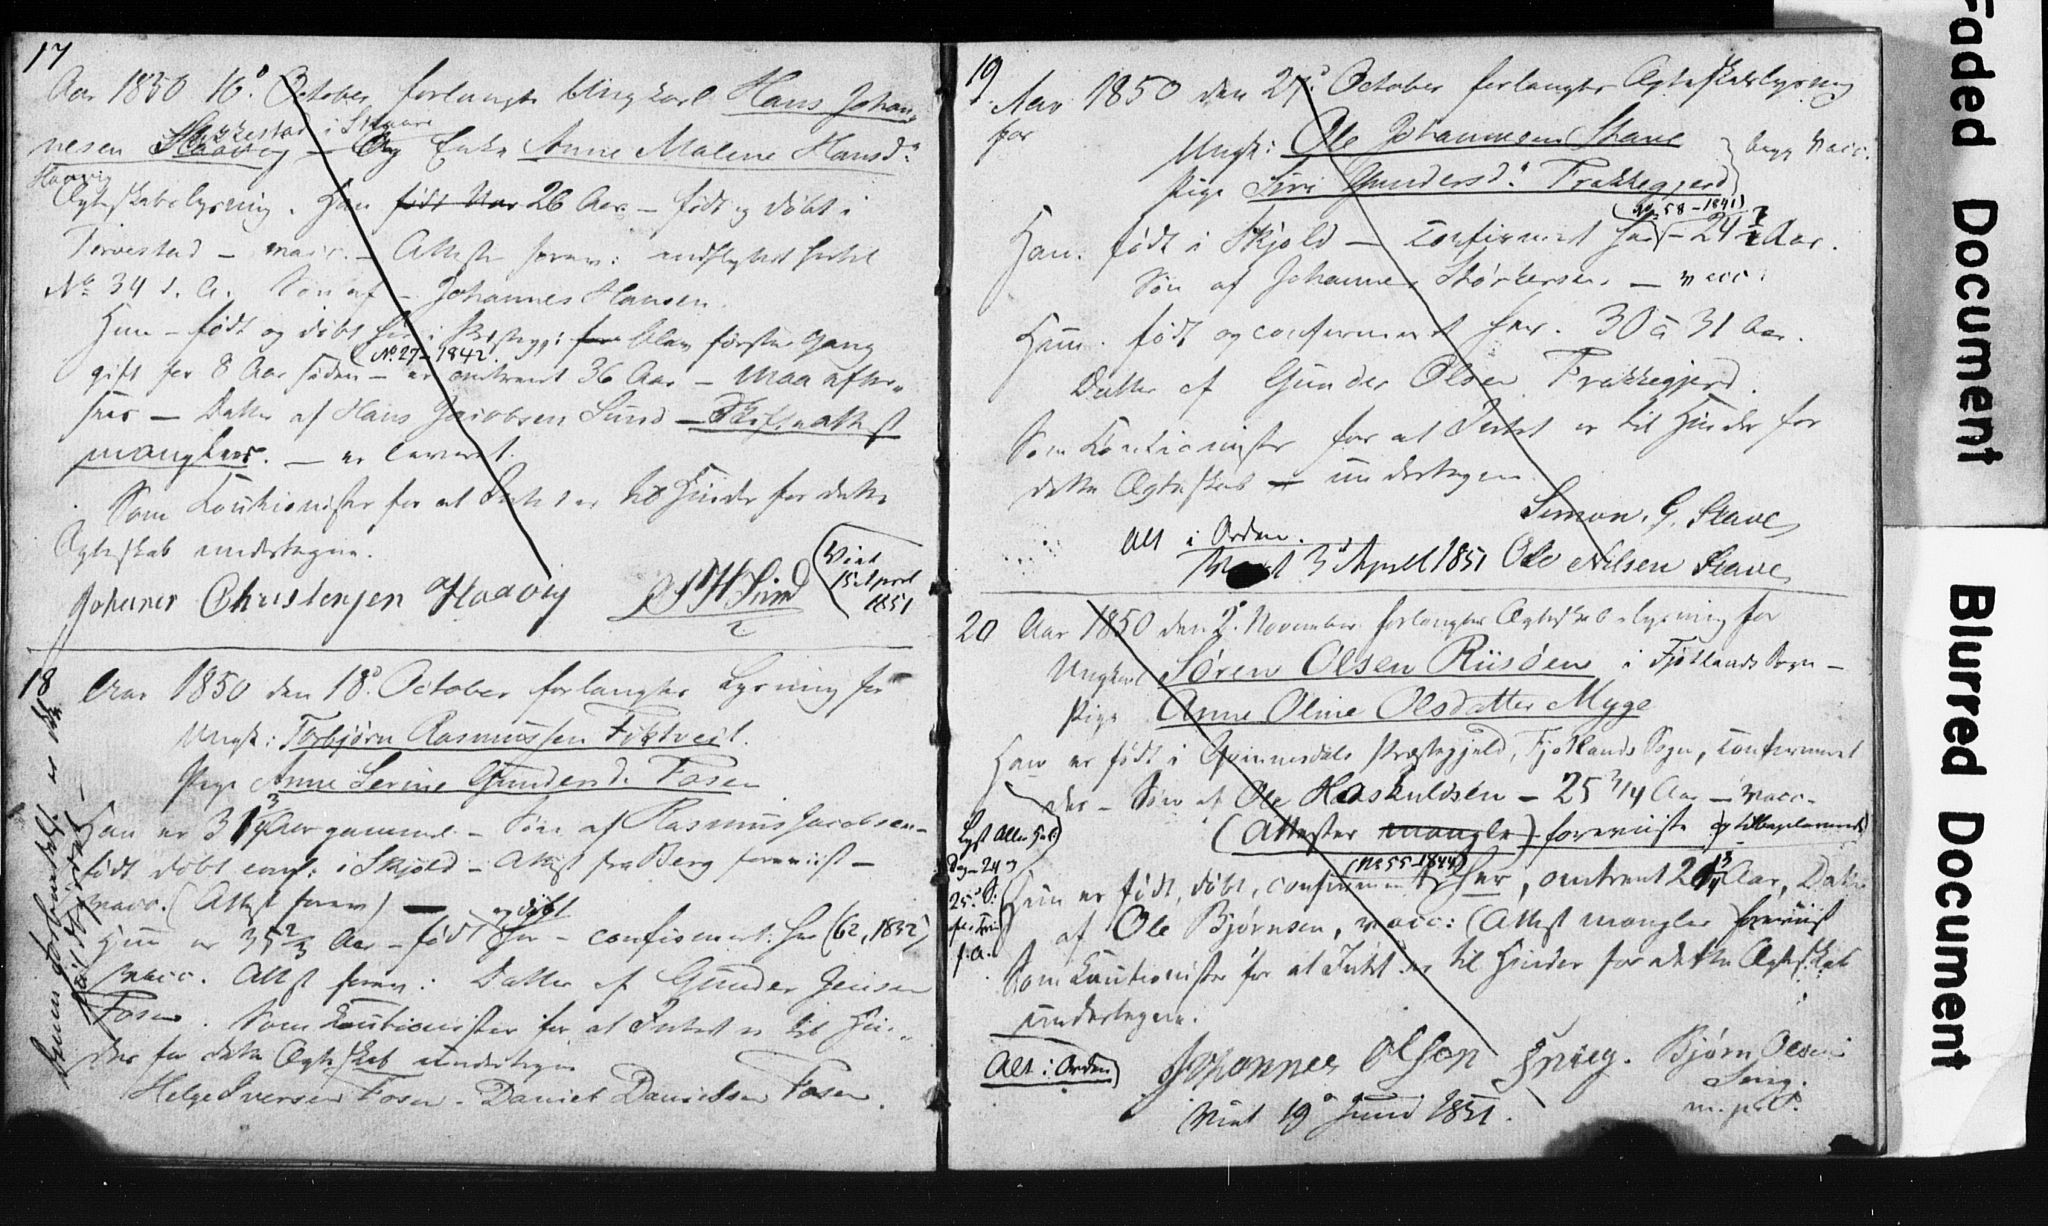 17
Aar 1850 16d October forlangte Ungkarl Hans Johan-
nesen Haavig Stakkestad i Skaare – Og Enke Anne Malene Hansd:
Haavig
Ægteskabslysning. Han født Aar 26 Aar – født og døbt i
Torvestad – vacc. – Attest forev: indflyttet hertil
No 34 d. A. Søn af – Johannes Hansen.
Hun – født og døbt her i Præstegj: for blev første Gang
(No 27 – 1842.
gift for 8 Aar siden – er omtrent 36 Aar – maa efter-
sees – Datter af Hans Jacobsen Sund – Skifteattest
mangler. – er leveret.
Som Cautionister for at Intet er til Hinder for dette
Ægteskab undertegne.
Johannes Christensen Haavig H Sund
(Viet
15 April
1851
18
Aar 1850 den 18d October forlangtes Lysning for
Ungk: Torbjørn Rasmussen Fiktveit.
Pige Anne Serine Gundersd. Fosen
Han er 31 3/4 Aar gammel – Søn af Rasmus Jacobsen –
født døbt conf: i Skjold – Attest fra Berg foreviist –
vacc. (Attest forev)
og døbt
Hun er 35 2/3 Aar – født her – confirmeret her (62, 1832)
vacc. Attest forev: Datter af Gunder Jensen
Fosen. Som Cautionister for at Intet er til Hin-
der for dette Ægteskab undertegne
Helge Iversen Fosen – Daniel Danielsen Fosen.
19.
Aar 1850 den 27d October forlangtes Ægteskabslysning
for
Ungk: Ole Johannesen Stave } begge vacc.
Pige Siri Gundersd: Frakkegjerd
(No 58 – 1841)
Han. født i Skjold – Confirmeret her – 24 Aar.
Søn af Johannes Størkersen – vacc:
Hun. født og confirmeret her. 30 à 31 Aar.
Datter af Gunder Olsen Frakkegjerd.
Som Cautionister for at Intet er til Hinder for
dette Ægteskab – undertegne
Simon. G. Stave
Alt i Orden.
Viet 3d April 1851 Ole Nilsen Stave
20 Aar 1850 den 2d November forlangtes Ægteskabslysning for
Ungkarl Søren Olsen Riisøen i Fjotlands Sogn –
Pige Anne Oline Olsdatter Myge
Han er født i Qvinnesdals Præstegjeld, Fjotlands Sogn, Confirmeret
der – Søn af Ole Haskuldsen – 25 3/4 Aar – vacc –
(Attester mangle) foreviiste og tilbageleverede)
Lyst
(No 55 – 1844)
Hun er født, døbt, confirmeret her, omtrent Aar, Datter
af Ole Bjørnsen, vacc: (Attest mangler) foreviist
Som Cautionister for at Intet er til Hinder for dette Ægteskab
undertegne.
Alt i Orden)
Johannes Olsen Bjørn Olsen
m. p. P.
Viet 19d Juni 1851.
Faded Document
Blurred Document